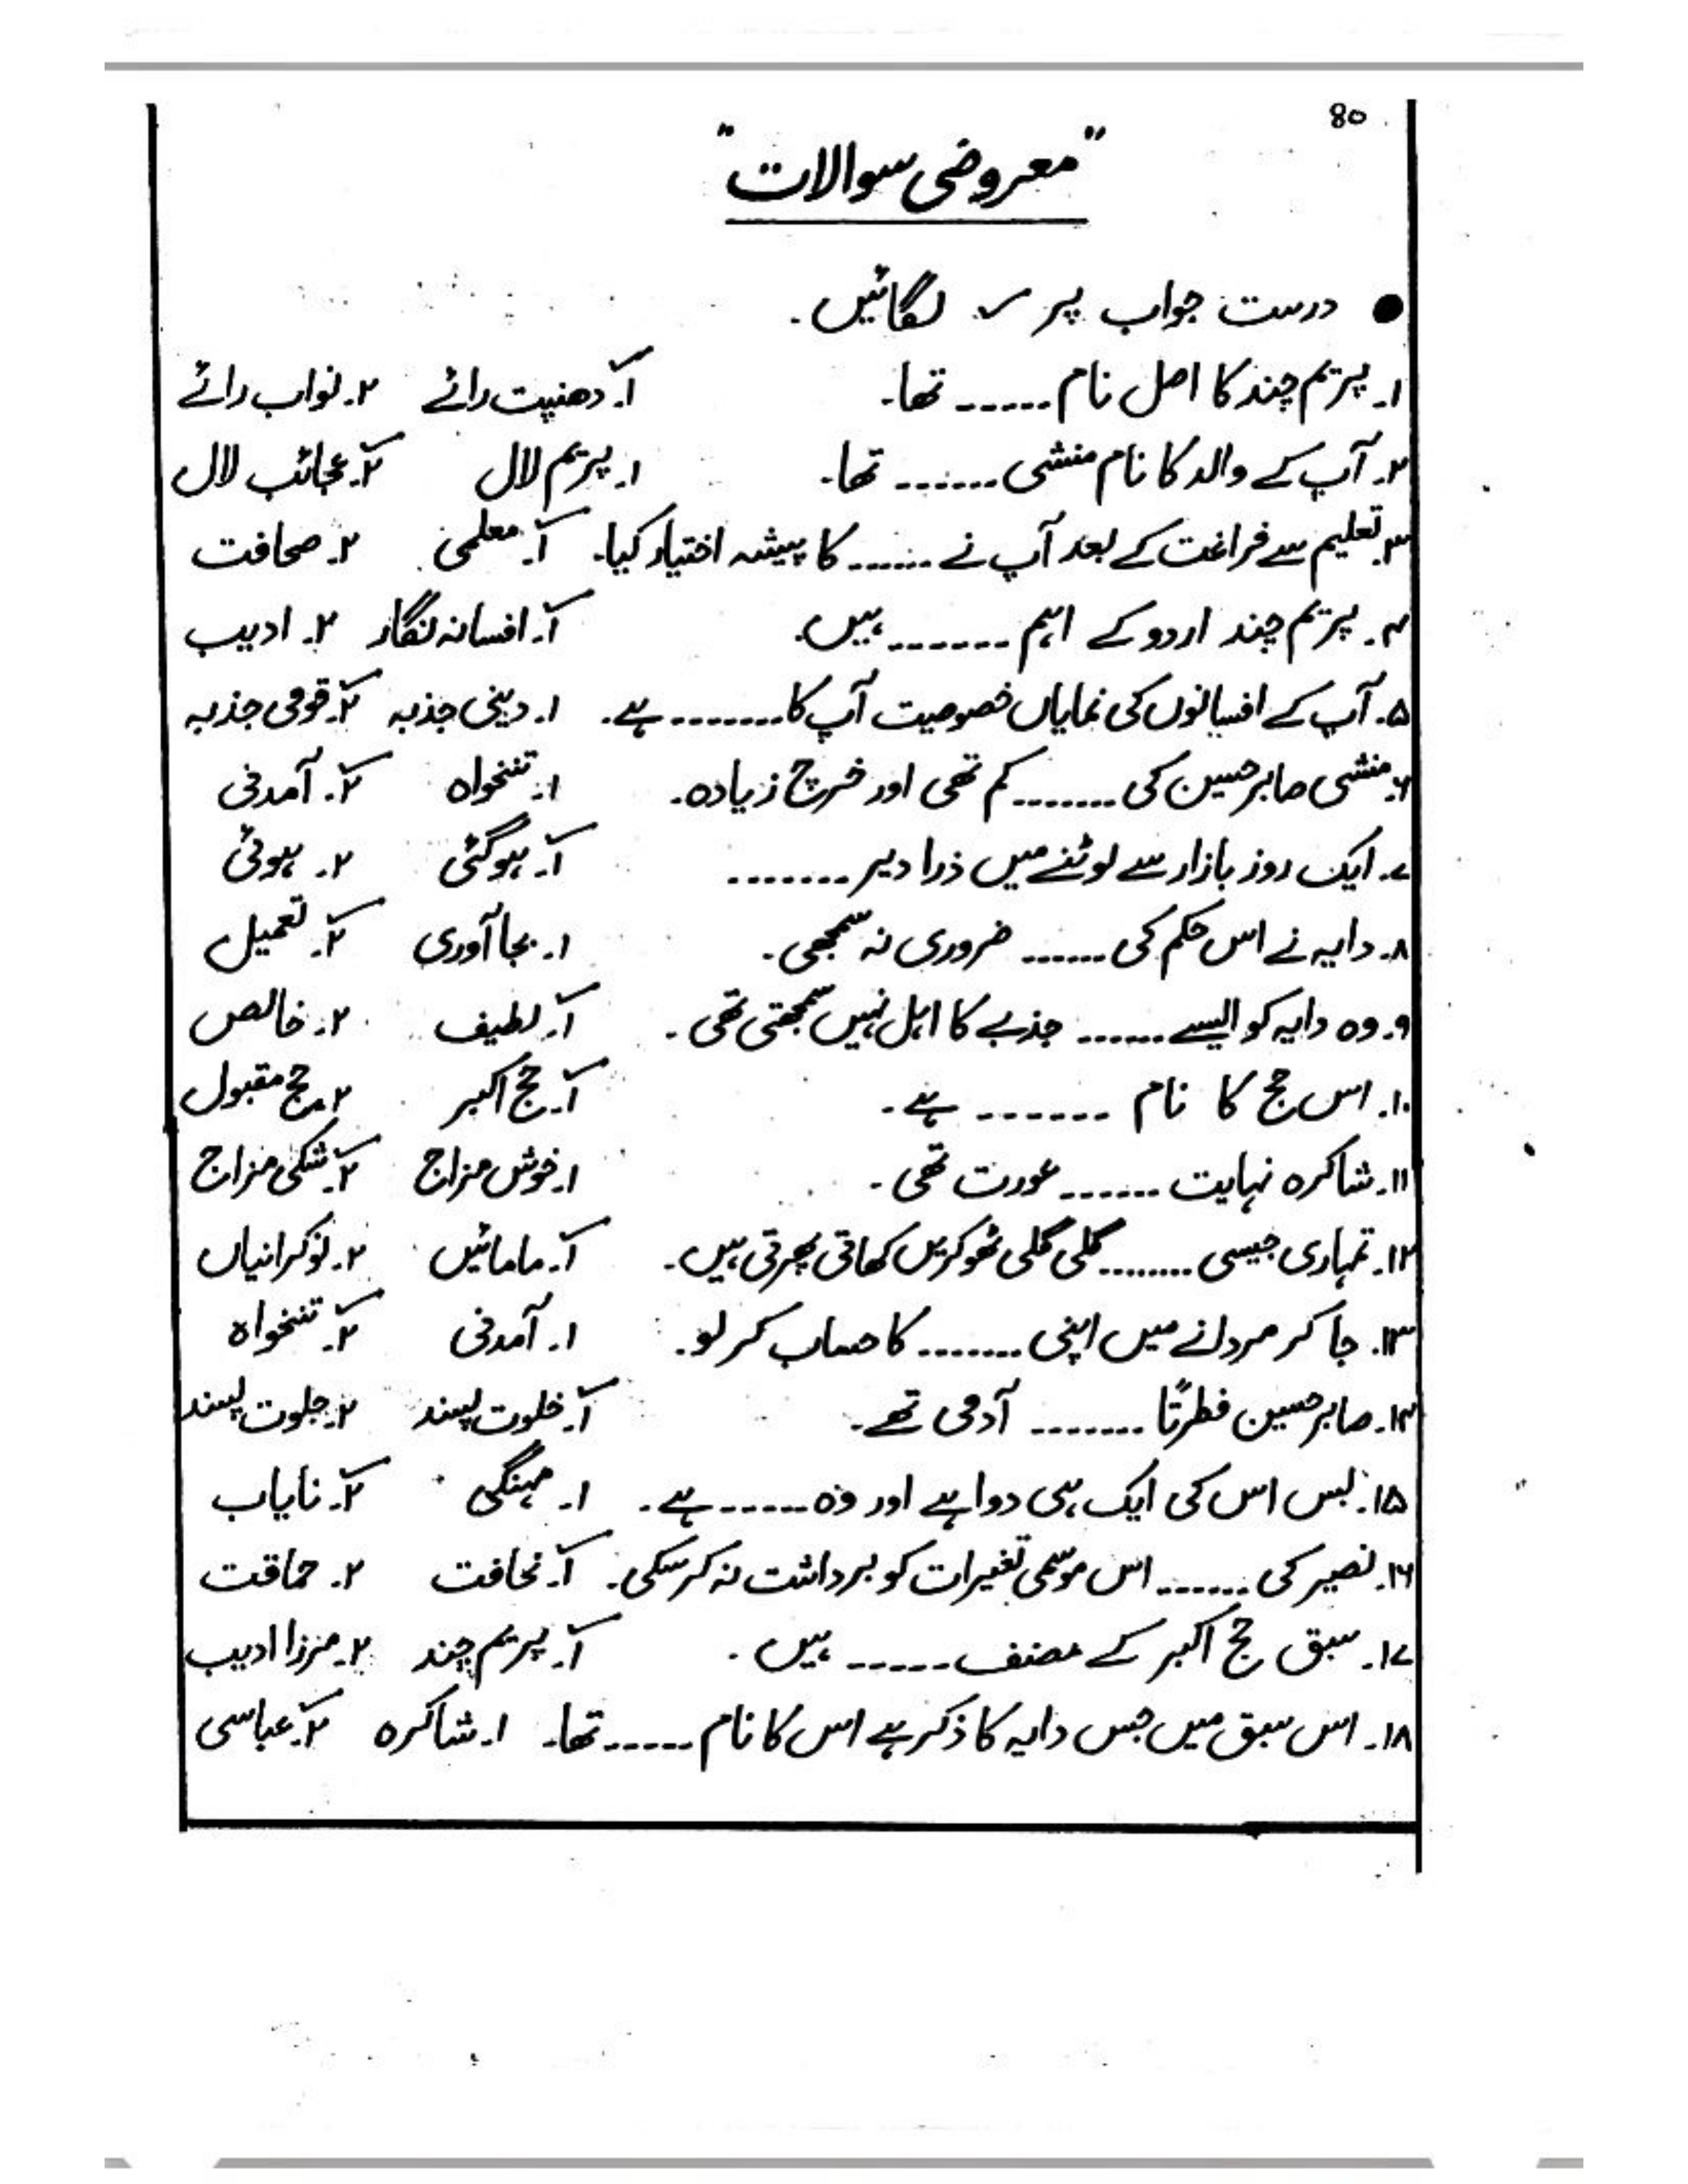 80
"معروضی سوالات"
● درست جواب پر ✓ لگائیں۔
۱۔ پریم چند کا اصل نام ...... تھا۔ ✓۱۔ دھنپت رائے ۲۔ نواب رائے
۲۔ آپ کے والد کا نام منشی ....... تھا۔ ۱۔ پریم لال ✓۲۔ عجائب لال
۳۔ تعلیم سے فراغت کے بعد آپ نے ...... کا پیشہ اختیار کیا۔ ✓۱۔ معلمی ۲۔ صحافت
۴۔ پریم چند اردو کے اہم ....... ہیں۔ ✓۱۔ افسانہ نگار ۲۔ ادیب
۵۔ آپ کے افسانوں کی نمایاں خصوصیت آپ کا ........ ہے۔ ۱۔ دینی جذبہ ✓۲۔ قومی جذبہ
۶۔ منشی صابر حسین کی ........ کم تھی اور خرچ زیادہ۔ ۱۔ تنخواہ ✓۲۔ آمدنی
۷۔ ایک روز بازار سے لوٹنے میں ذرا دیر ........ ✓۱۔ ہوگئی ۲۔ ہوئی
۸۔ دایہ نے اس حکم کی ....... ضروری نہ سمجھی۔ ۱۔ بجا آوری ✓۲۔ تعمیل
۹۔ وہ دایہ کو ایسے ....... جذبے کا اہل نہیں سمجھتی تھی۔ ✓۱۔ لطیف ۲۔ خالص
۱۰۔ اس حج کا نام ....... ہے۔ ✓۱۔ حج اکبر ۲۔ حج مقبول
۱۱۔ شاکرہ نہایت ....... عورت تھی۔ ۱۔ خوش مزاج ✓۲۔ شکی مزاج
۱۲۔ تمہاری جیسی ........ گلی گلی ٹھوکریں کھاتی پھرتی ہیں۔ ✓۱۔ مامائیں ۲۔ نوکرانیاں
۱۳۔ جا کر مردانے میں اپنی ........ کا حساب کر لو۔ ۱۔ آمدنی ✓۲۔ تنخواہ
۱۴۔ صابر حسین فطرتًا ........ آدمی تھے۔ ✓۱۔ خلوت پسند ۲۔ جلوت پسند
۱۵۔ بس اس کی ایک ہی دوا ہے اور وہ ...... ہے۔ ۱۔ مہنگی ✓۲۔ نایاب
۱۶۔ نصیر کی ....... اس موسمی تغیرات کو برداشت نہ کر سکی۔ ✓۱۔ نحافت ۲۔ حماقت
۱۷۔ سبق حج اکبر کے مصنف ...... ہیں۔ ✓۱۔ پریم چند ۲۔ مرزا ادیب
۱۸۔ اس سبق میں جس دایہ کا ذکر ہے اس کا نام ...... تھا۔ ۱۔ شاکرہ ✓۲۔ عباسی